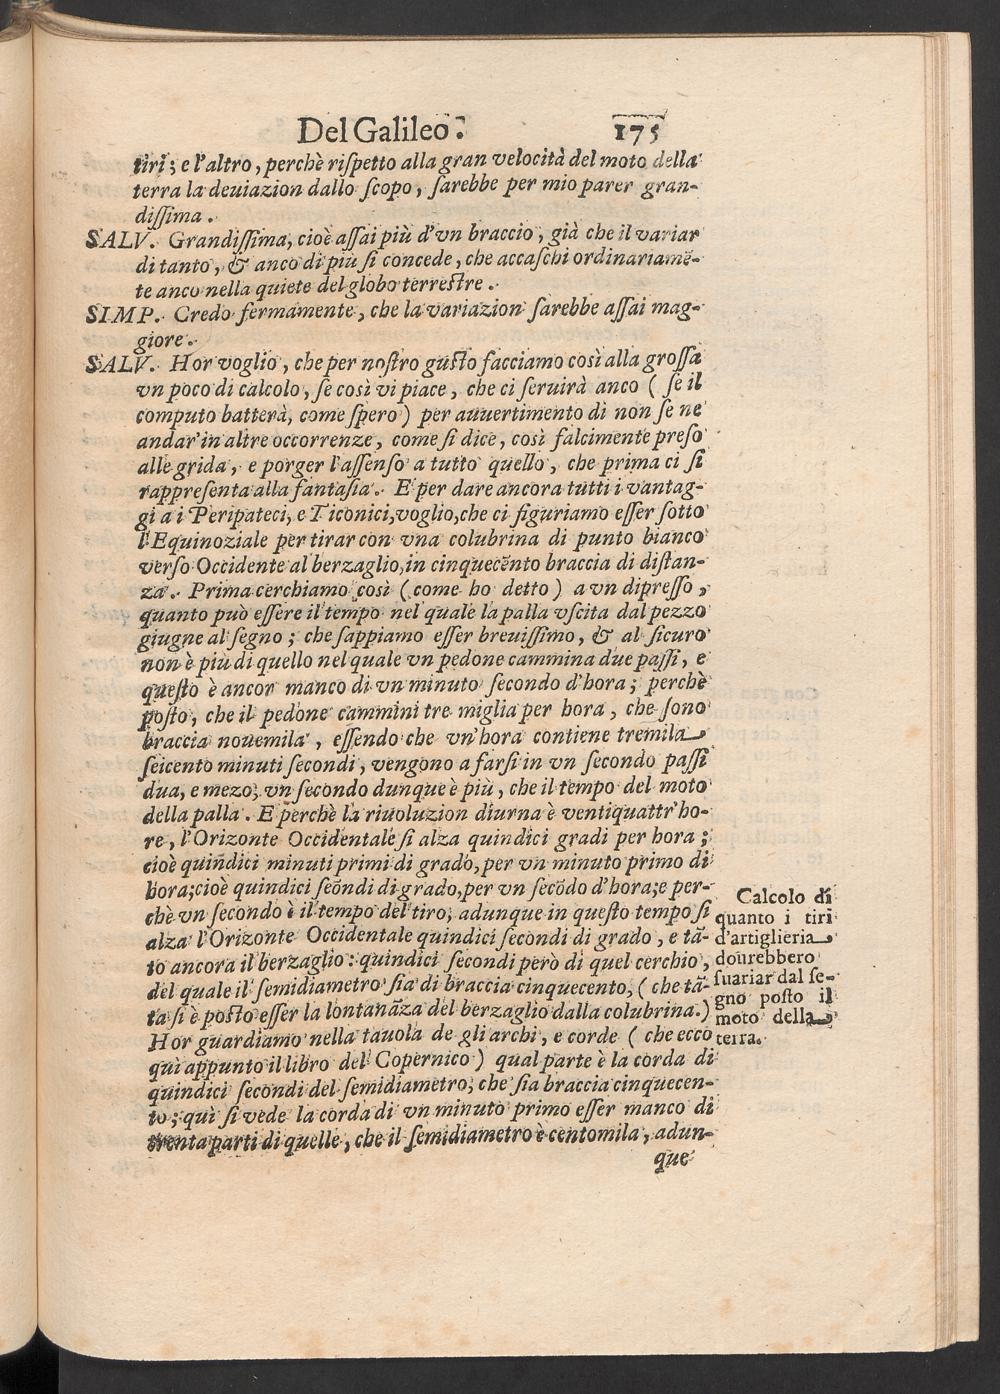 Del Galileo. 175
tiri; e l'altro, perchè riſpetto alla gran velocità del moto della
terra la deuiazion dallo ſcopo, ſarebbe per mio parer gran-
diſſima.
SALV. Grandiſſima, cioè aſſai più d'vn braccio, già che il variar
di tanto, & anco di più ſi concede, che accaſchi ordinariamē-
te anco nella quiete del globo terreſtre.
SIMP. Credo fermamente, che la variazion ſarebbe aſſai mag-
giore.
SALV. Hor voglio, che per noſtro guſto facciamo così alla groſſa
vn poco di calcolo, ſe così vi piace, che ci ſeruirà anco ( ſe il
computo batterà, come ſpero ) per auuertimento di non ſe ne
andar'in altre occorrenze, come ſi dice, così falcimente preſo
alle grida, e porger l'aſſenſo a tutto quello, che prima ci ſi
rappreſenta alla fantaſia. E per dare ancora tutti i vantag-
gi a i Peripateci, e Ticonici, voglio, che ci figuriamo eſſer ſotto
l'Equinoziale per tirar con vna colubrina di punto bianco
verſo Occidente al berzaglio, in cinquecēnto braccia di diſtan-
za. Prima cerchiamo così ( come ho detto ) a vn dipreſſo,
quanto può eſſere il tempo nel quale la palla vſcita dal pezzo
giugne al ſegno; che ſappiamo eſſer breuiſſimo, & al ſicuro
non è più di quello nel quale vn pedone cammina due paſſi, e
queſto è ancor manco di vn minuto ſecondo d'hora; perchè
poſto, che il pedone cammini tre miglia per hora, che ſono
braccia nouemila, eſſendo che vn'hora contiene tremila
ſeicento minuti ſecondi, vengono a farſi in vn ſecondo paſſi
dua, e mezo; vn ſecondo dunque è più, che il tempo del moto
della palla. E perchè la riuoluzion diurna è ventiquattr'ho-
re, l'Orizonte Occidentale ſi alza quindici gradi per hora;
cioè quiñdici minuti primi di grado, per vn minuto primo di
hora; cioè quindici ſeōndi di grado, per vn ſecōdo d'hora; e per-
chè vn ſecondo è il tempo del tiro, adunque in queſto tempo ſi
alza l'Orizonte Occidentale quindici ſecondi di grado, e tā-
to ancora il berzaglio: quindici ſecondi però di quel cerchio,
del quale il ſemidiametro ſia di braccia cinquecento, ( che tā-
ta ſi è poſto eſſer la lontanāza del berzaglio dalla colubrina.)
Hor guardiamo nella tauola de gli archi, e corde ( che ecco
quì appunto il libro del Copernico ) qual parte è la corda di
quindici ſecondi del ſemidiametro, che ſia braccia cinquecen-
to; qui ſi vede la corda di vn minuto primo eſſer manco di
trenta parti di quelle, che il ſemidiametro è centomila, adun-
que
Calcolo di
quanto i tiri
d'artiglieria
dourebbero
ſuariar dal ſe-
gno poſto il
moto della
terra.